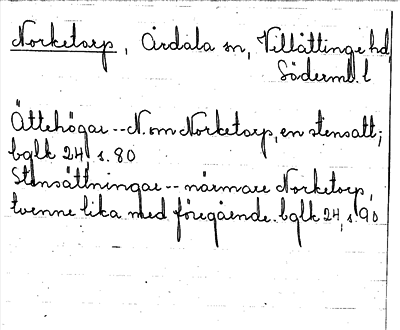 Norketorp, Årdala sn, Villåttinge hd
Söderml. l
Ättehögar -- N. om Norketorp, en stensatt;
bglk 24 s. 80
Stensättningar -- närmare Norketorp,
tvenne lika med föregående. bglk 24, s. 90